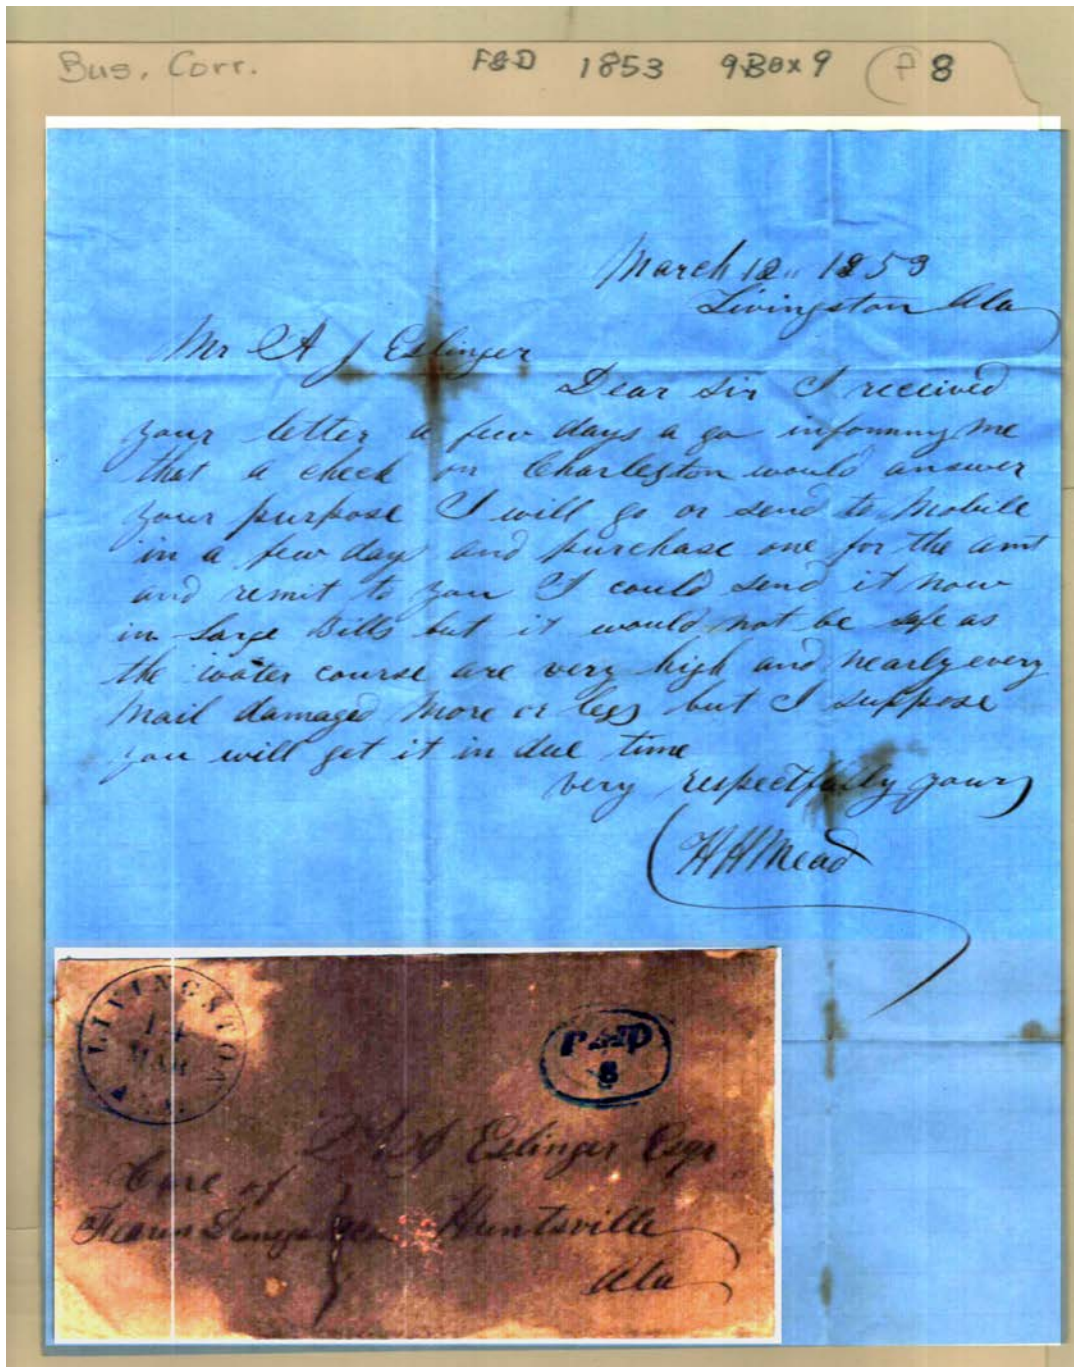 Bus. Corr. F&D 1853 9Box9 (P 8
March 12 1853
Livingston Ala
Mr A J Eslinger
Dear Sir I received
your letter a few days a go informing me
that a check on Charleston would answer
your purpose I will go or send to Mobile
in a few days and purchase one for the amt
and remit to you I could send it now
in Large Bills but it would not be safe as
the water course are very high and nearly every
Mail damaged more or less but I suppose
you will get it in due time
very respectfully yours
H H Mead
LIVINGSTON
14
MAR
ALA
PAID
8
A J Eslinger Esqr
Care of
Huntsville
Ala